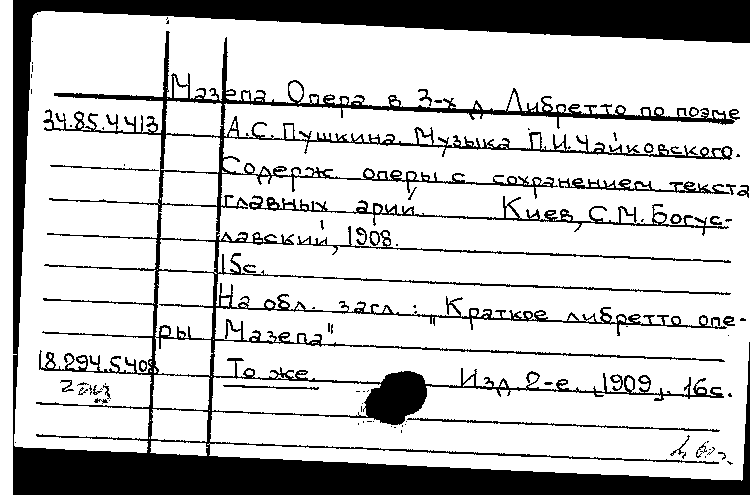 Мазепа. Опера в 3-х д. Либретто по поэме
34.85.4.413 А.С. Пушкина. Музыка П.И. Чайковского.
Содерж оперы с сохранением текста
главных арий. Киев, С.М. Богус-
лавский, 1908.
15с.
На обл. загл.: „Краткое либретто опе-
ры Мазепа".
18.294.5.408 То же. Изд. 2-е. [1909]. 16с.
2 экз